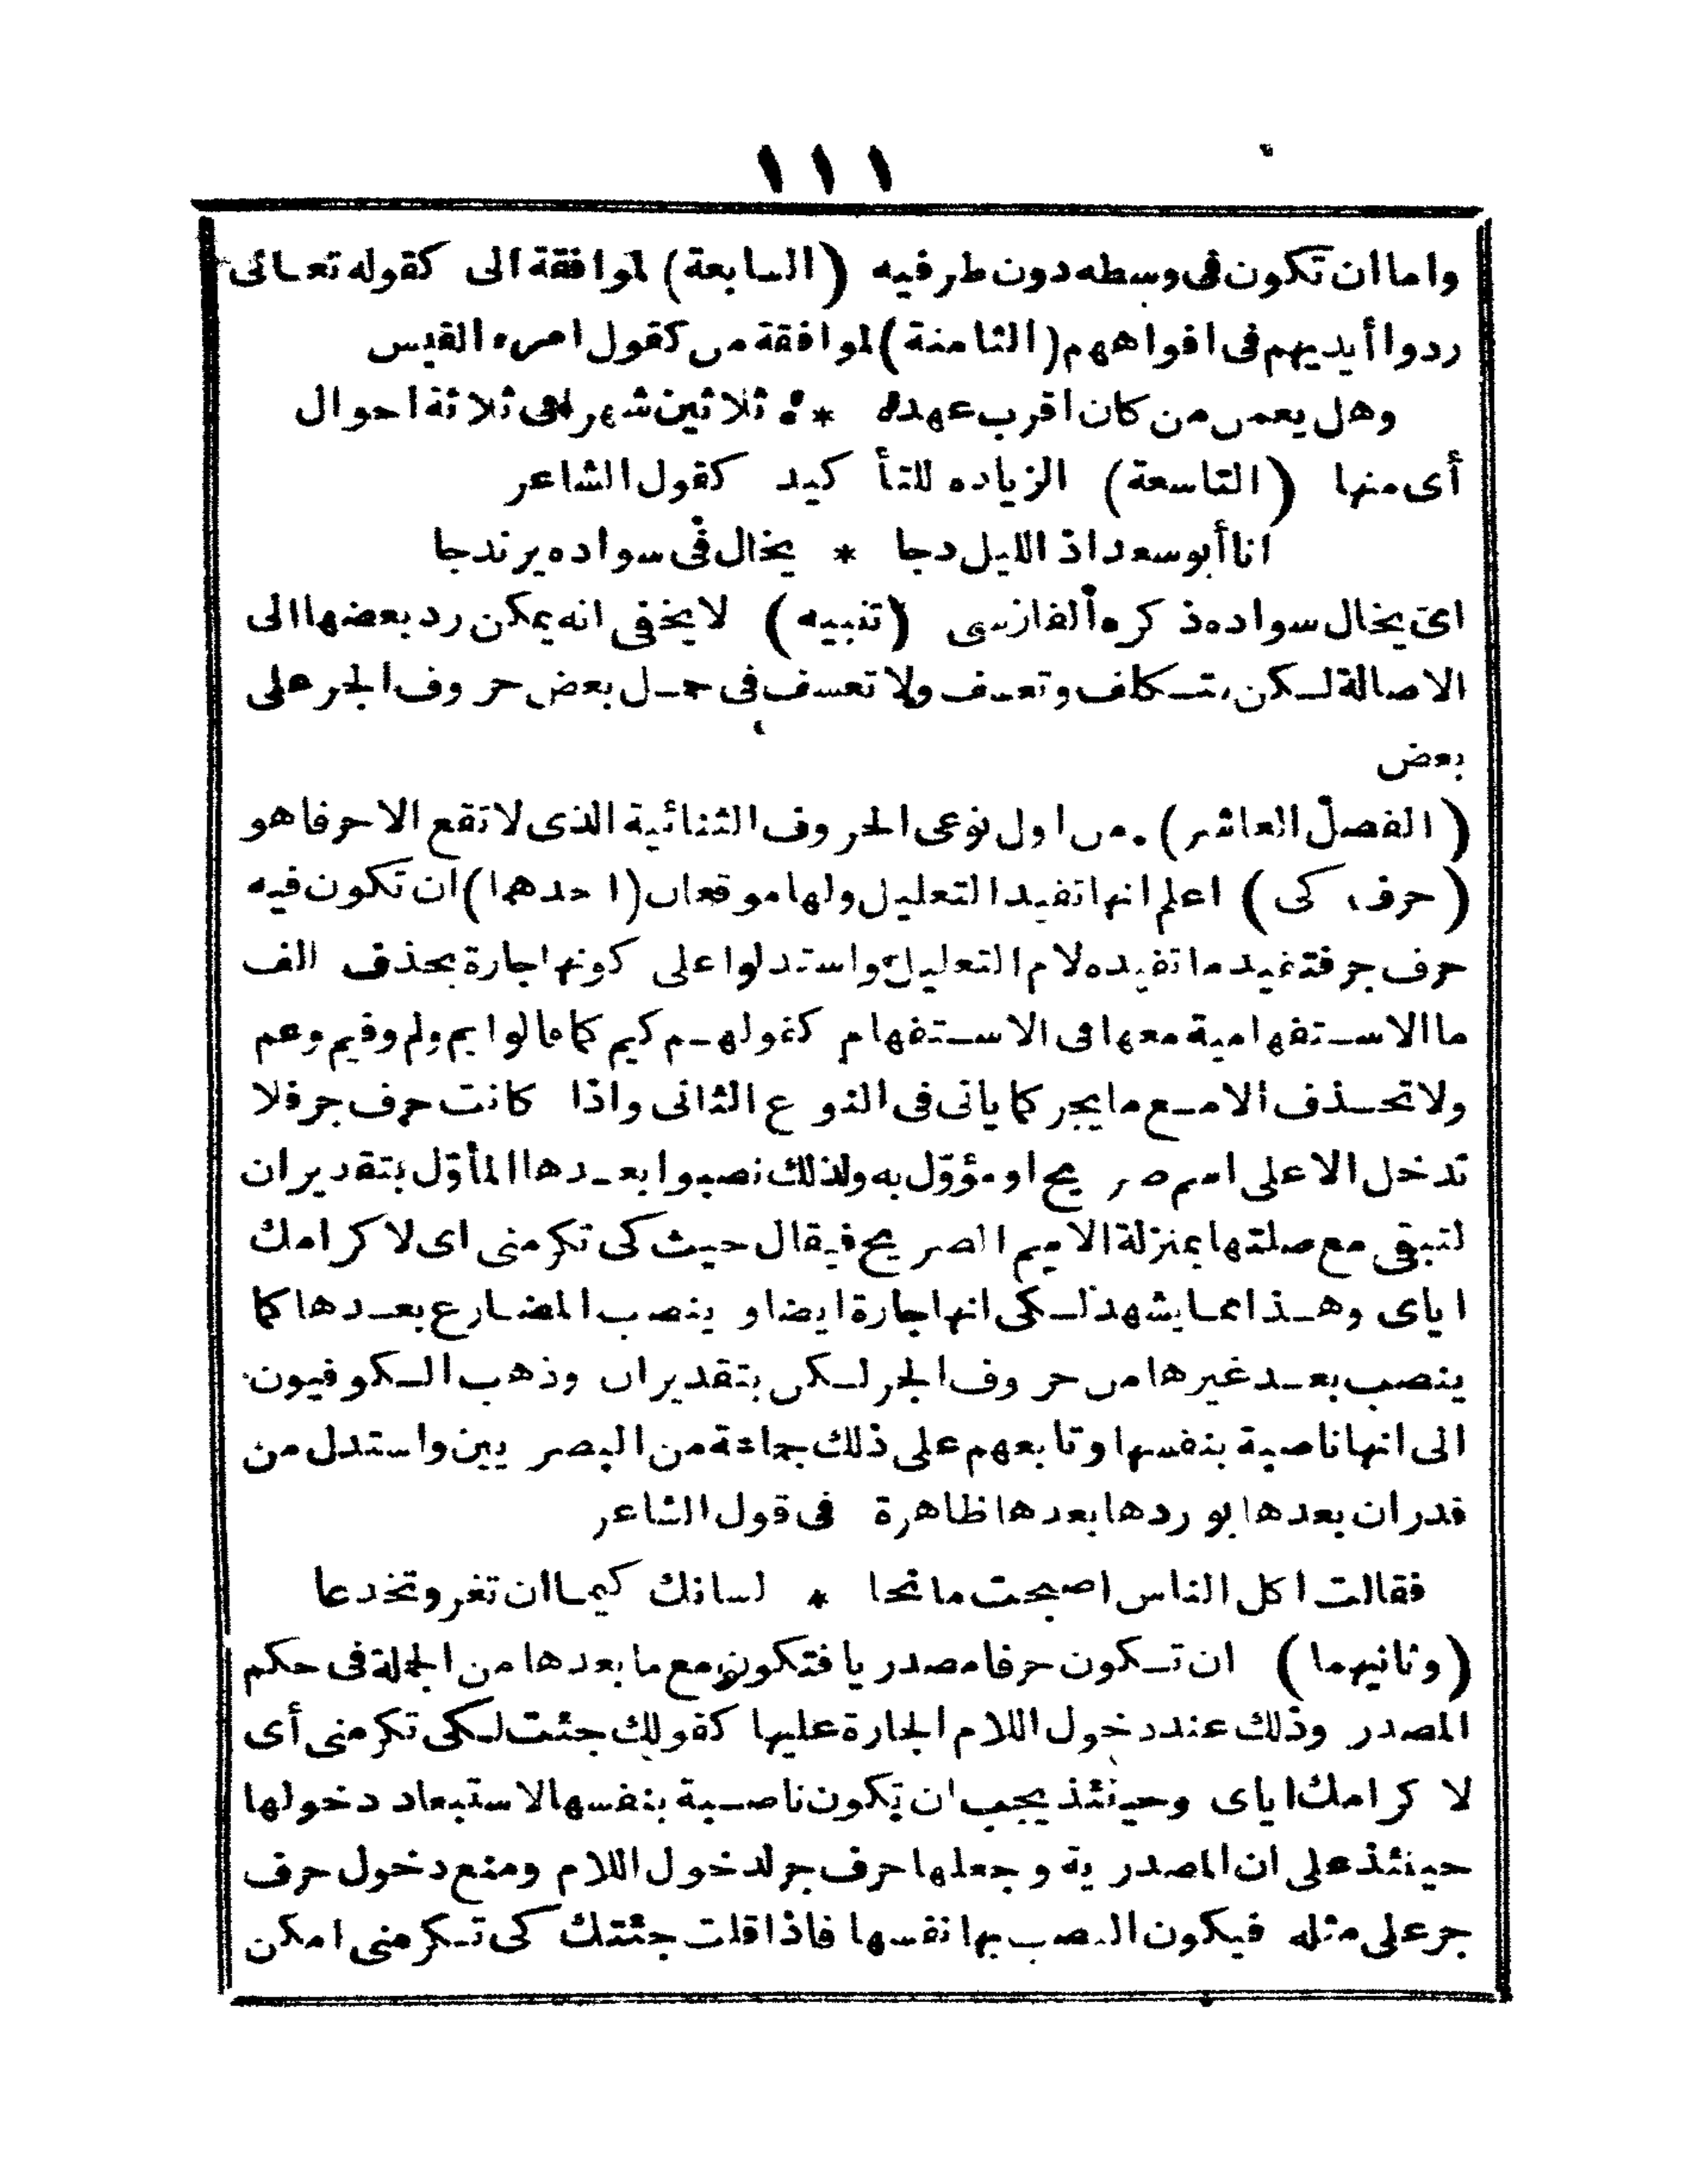 ١١١
واما ان تكون فى وسطه دون طرفيه (السابعة) لموافقة الى كقوله تعالى
ردوا أيديهم فى افواههم (الثامنة) لموافقة من كقول امرء القيس
وهل يعمن من كان اقرب عهده * ثلاثين شهرا فى ثلاثة احوال
أى منها (التاسعة) الزياده للتأ كيد كقول الشاعر
انا أبو سعد اذ الليل دجا * يخال فى سواده يرندجا
اى يخال سواده ذ كره ألفارسى (تنبيه) لا يخفى انه يمكن رد بعضها الى
الاصالة لكن بتكلف وتعسف ولا تعسف فى حمل بعض حروف الجر على
بعض
(الفصل العاشر) من اول نوعى الحروف الثنائية الذى لا تقع الا حرفا هو
(حرف كى) اعلم انها تفيد التعليل ولها موقعان (احدهما) ان تكون فيه
حرف جر فتفيد ما تفيده لام التعليل واستدلوا على كونها جارة بحذف الف
ما الاستفهامية معها فى الاستفهام كقولهم كيم كما قالوا بم ولم وفيم وعم
ولا تحذف الا مع ما يجر كما ياتى فى النوع الثانى واذا كانت حرف جر فلا
تدخل الا على اسم صريح او مؤوّل به ولذلك نصبوا بعدها المأوّل بتقدير ان
لتبقى مع صلتها بمنزلة الاسم الصريح فيقال جيث كى تكرمنى اى لا كرامك
اياى وهذا مما يشهد لكى انها جارة ايضا و ينصب المضارع بعدها كما
ينصب بعد غيرها من حروف الجر لكن بتقدير ان وذهب الكوفيون
الى انها ناصبة بنفسها وتابعهم على ذلك جماعة من البصريين واستدل من
قدر ان بعدها بورودها بعدها ظاهرة فى قول الشاعر
فقالت اكل الناس اصبحت مانحا * لسانك كيما ان تغر وتخدعا
(وثانيهما) ان تكون حرفا مصدريا فتكون مع ما بعدها من الجملة فى حكم
المصدر وذلك عند دخول اللام الجارة عليها كقولك جئت لكى تكرمنى أى
لا كرامك اياى وحينئذ يجب ان تكون ناصبة بنفسها لاستبعاد دخولها
حينئذ على ان المصدرية وجعلها حرف جر لدخول اللام ومنع دخول حرف
جر على مثله فيكون النصب بها نفسها فاذا قلت جئتك كى تكرمنى امكن